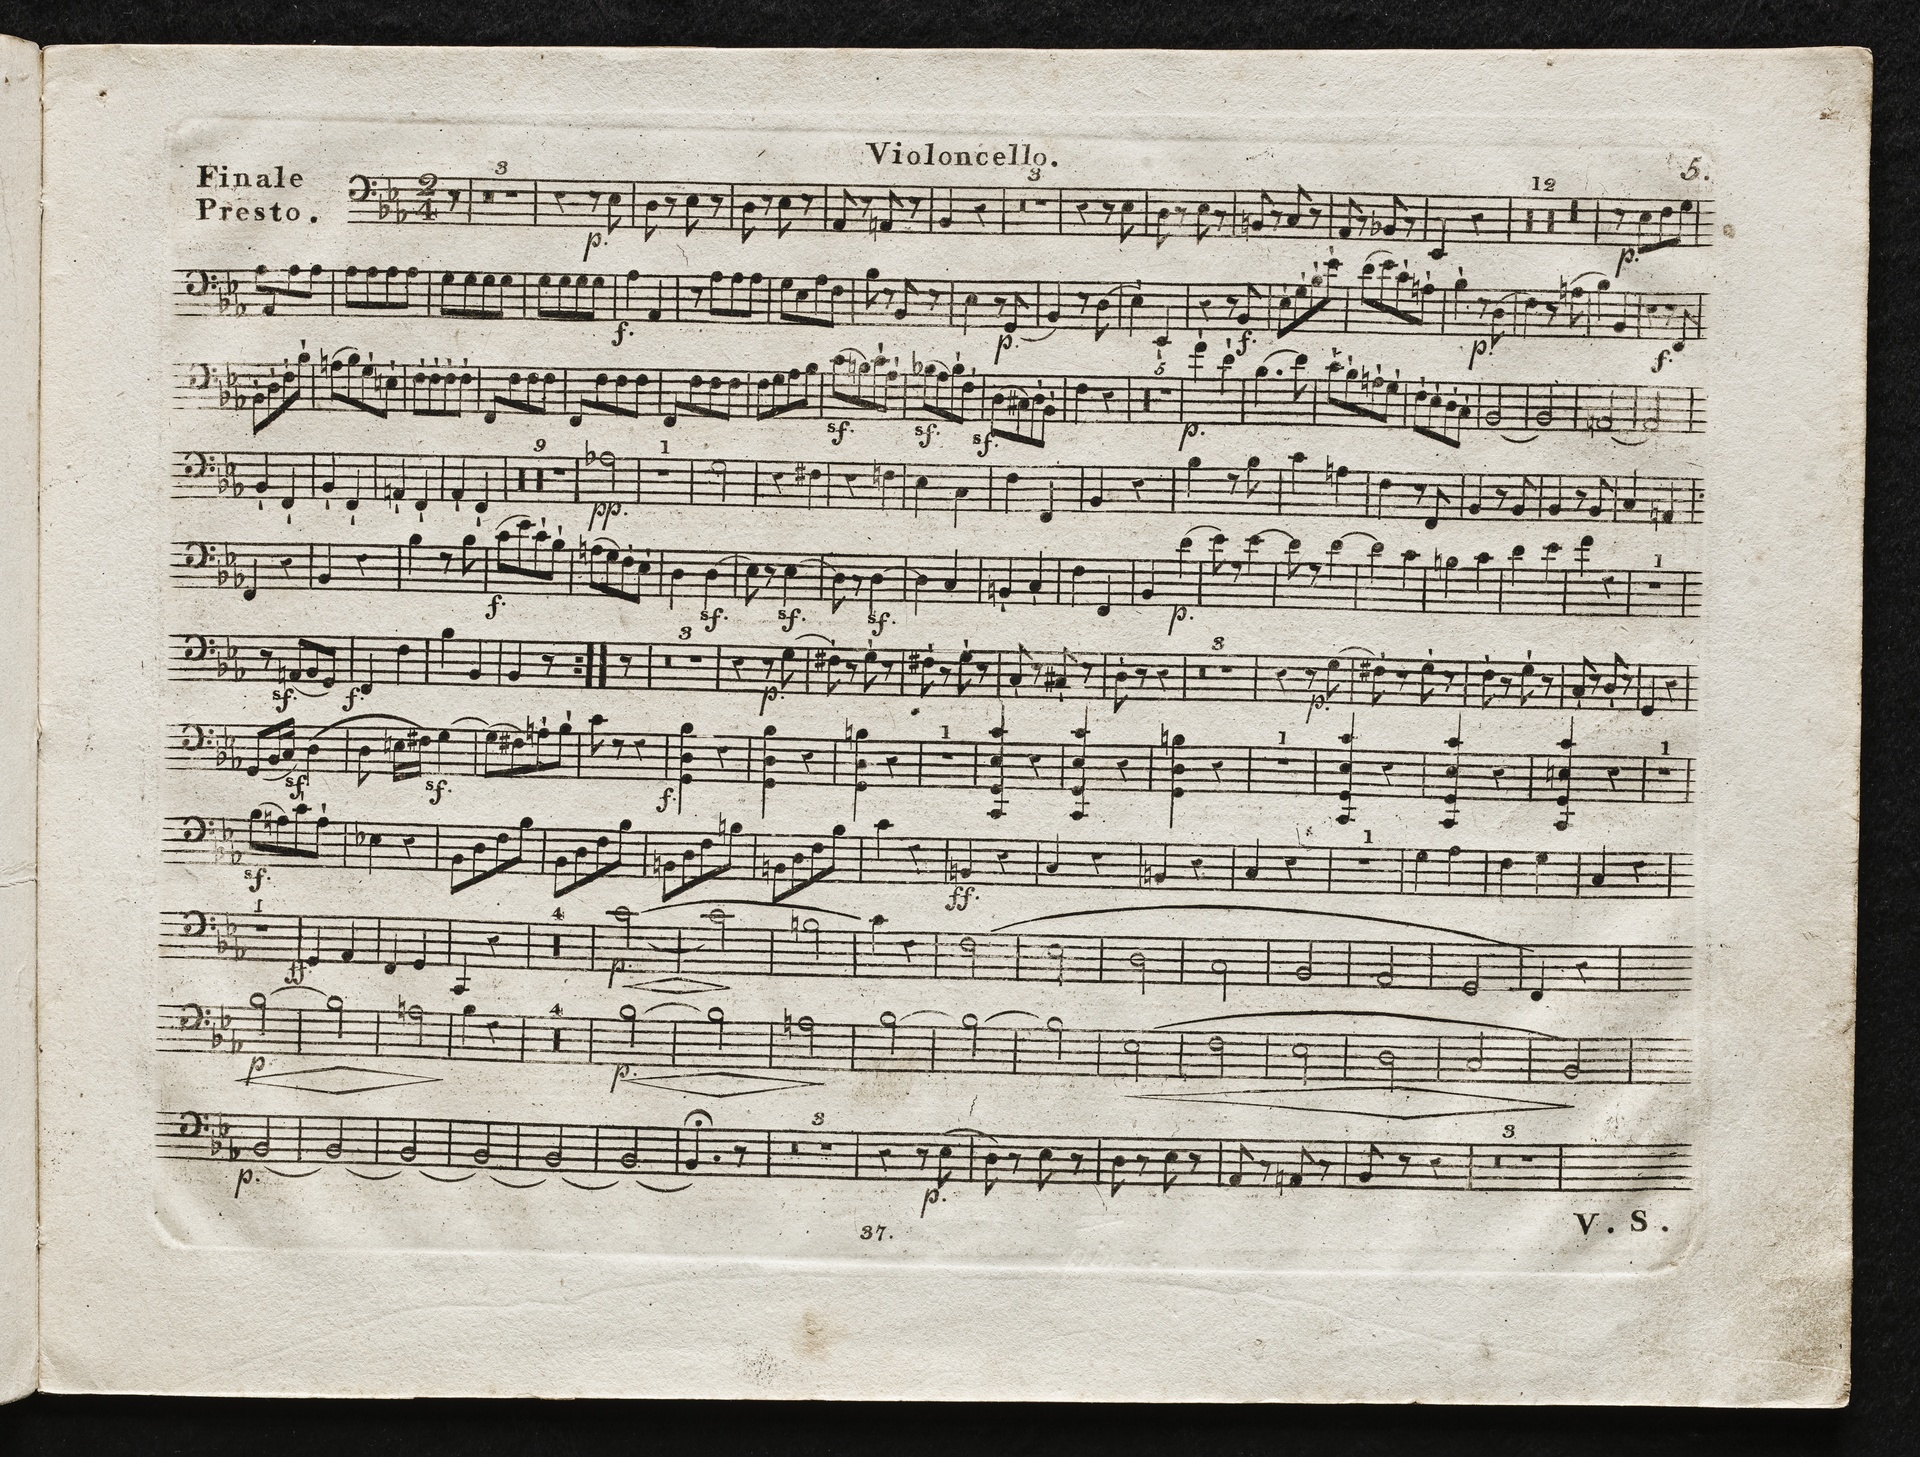 Violoncello.
5.
Finale
Presto.
2
4
3
3
12
p.
p.
f.
p.
f.
p.
f.
5
sf.
sf.
sf.
p.
9
1
pp.
1
f.
sf.
sf.
sf.
p.
3
3
sf.
f.
p.
p.
1
1
1
sf.
sf.
f.
1
sf.
ff.
1
4
ff
p.
4
p.
p.
3
3
p.
p.
V. S.
37.